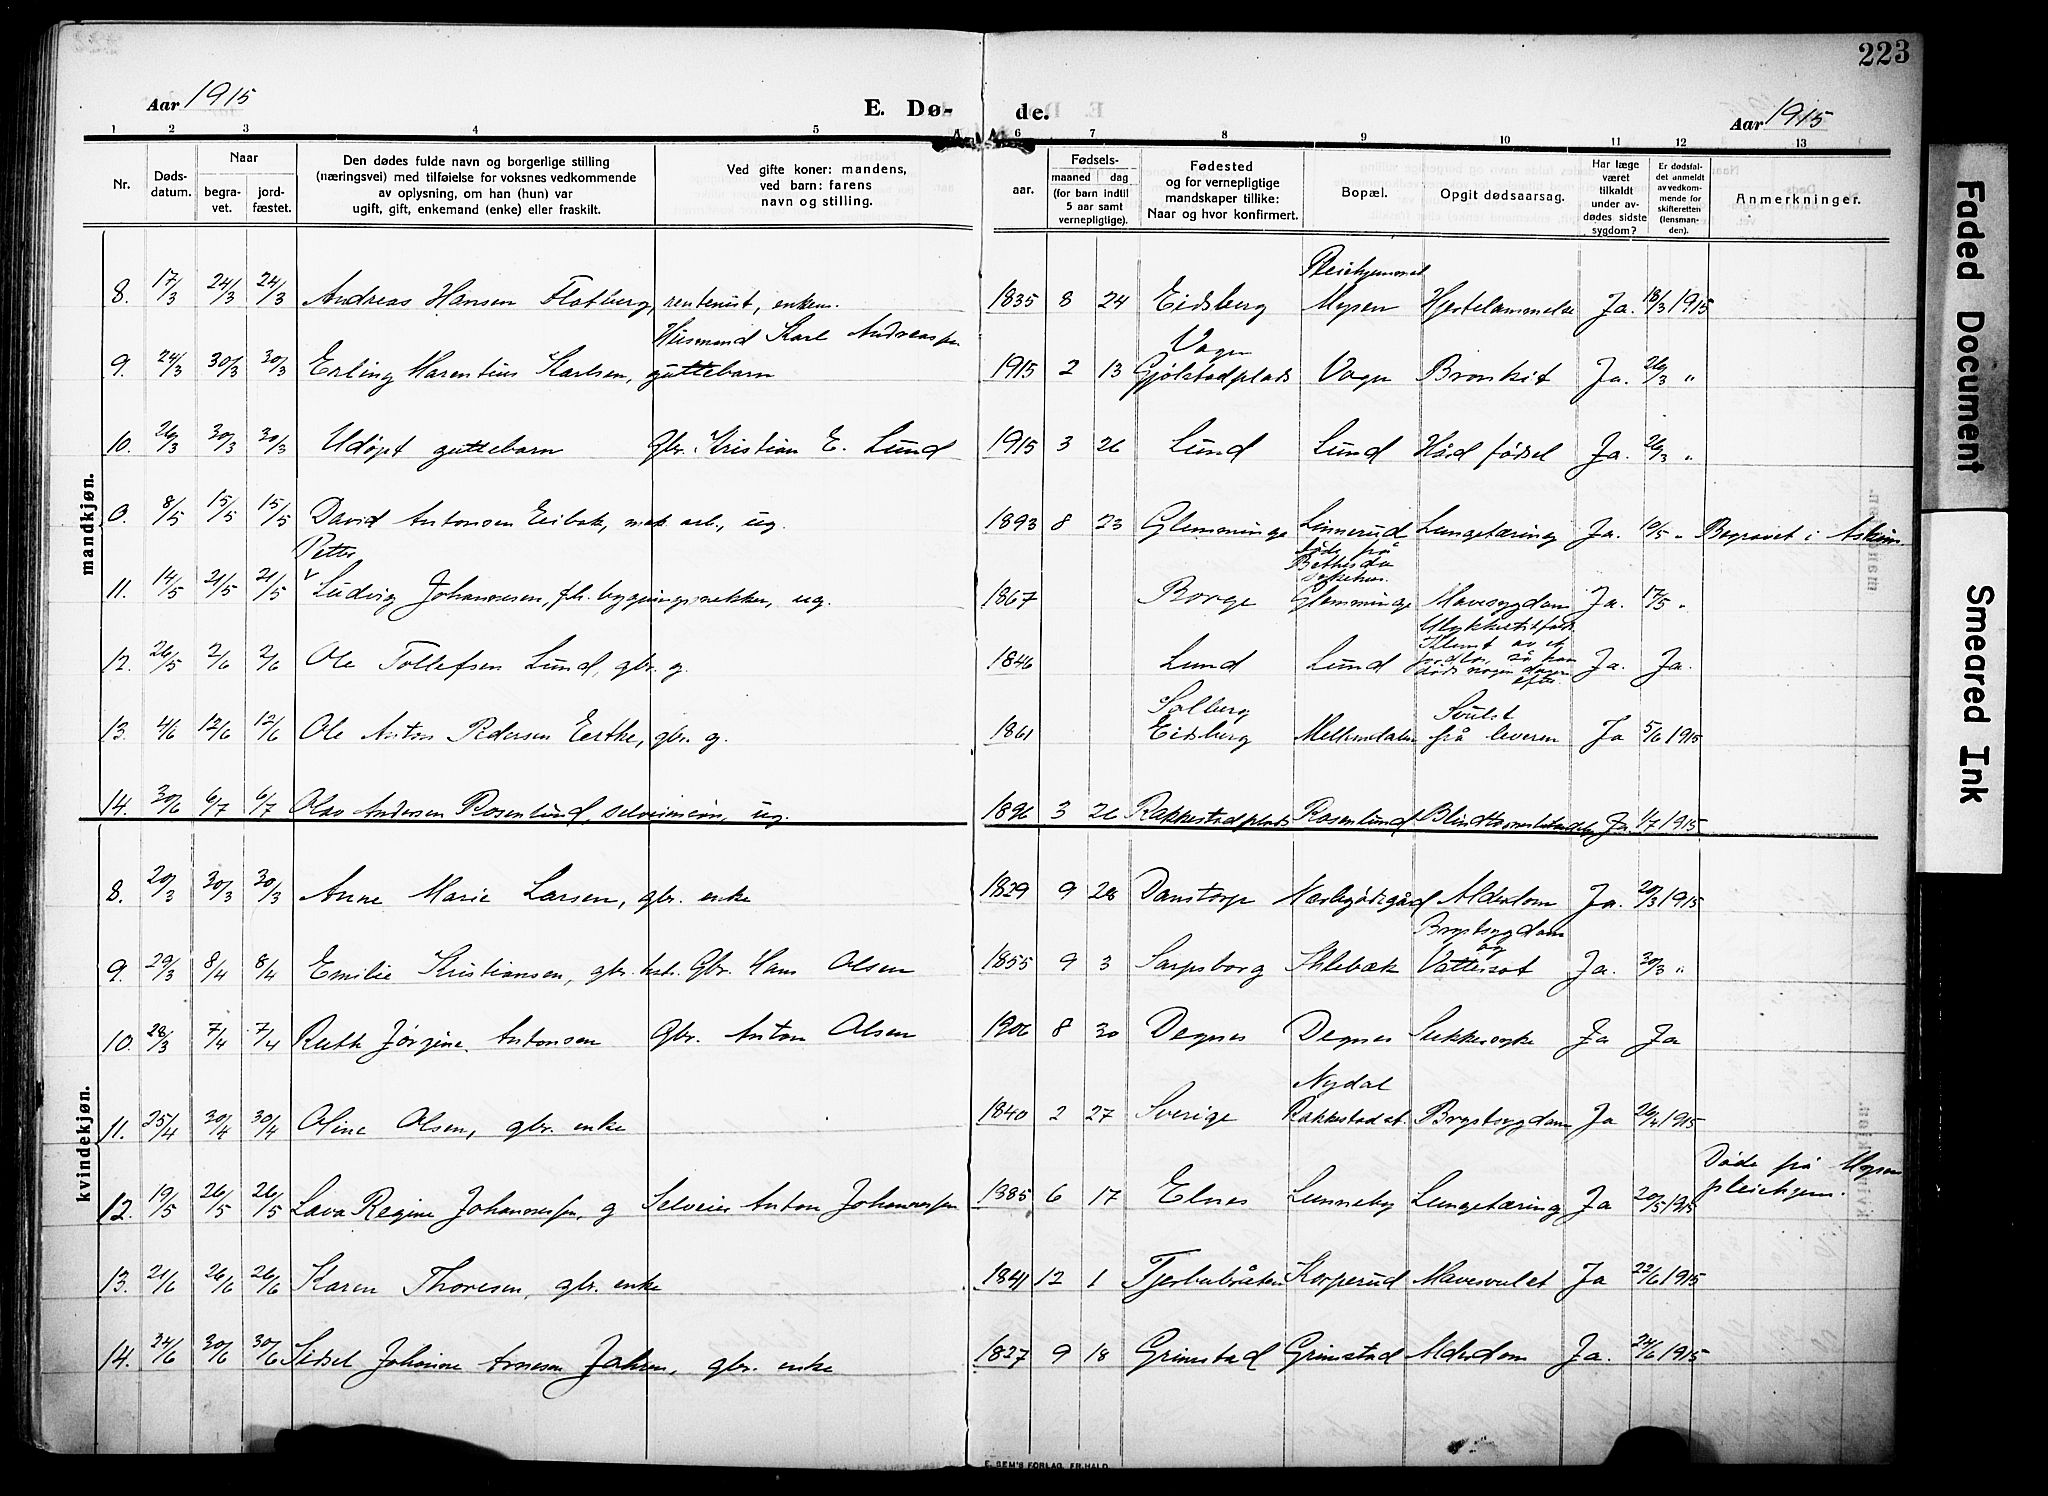 223
Aar 1915
E. Dø-
de.
Aar 1915
1 2 3 4 5 6 7 8 9 10 11 12 13
Nr.
Døds-
datum.
Naar
begra-
vet.
jord-
fæstet.
Den dødes fulde navn og borgerlige stilling
(næringsvei) med tilføielse for voksnes vedkommende
av oplysning, om han (hun) var
ugift, gift, enkemand (enke) eller fraskilt.
Ved gifte koner: mandens,
ved barn: farens
navn og stilling.
aar.
Fødsels-
maaned dag
(for barn indtil
5 aar samt
vernepligtige).
Fødested
og for vernepligtige
mandskaper tillike:
Naar og hvor konfirmert.
Bopæl.
Opgit dødsaarsag.
Har læge
været
tilkaldt
under av-
dødes sidste
sygdom?
Er dødsfal-
det anmeldt
av vedkom-
mende for
skifteretten
(lensman-
den).
Anmerkninger.
mandkjøn.
Pleiehjemmet
8. 17/3 24/3 24/3 Andreas Hansen Flatberg, rentenist, enkem. 1835 8 24 Eidsberg Mysen Hjertelammelse Ja. 18/3 1915
Husmand Karl Andreassen Vagn
9. 24/3 30/3 30/3 Erling Marentius Karlsen, guttebarn 1915 2 13 Gjølstadplads Vagn Bronkit Ja. 26/3 "
10. 26/3 30/3 30/3 Udøpt guttebarn Gbr. Kristian E. Lund 1915 3 26 Lund Lund Hård fødsel Ja. 26/3 "
0. 8/5 15/5 15/5 David Antonsen Eibak, mek. arb., ug. 1893 8 23 Glemminge Linnerud Lungetæring Ja. 10/5 " Begravet i Askim.
Petter døde på Bethesda sykehus.
11. 14/5 21/5 21/5 Ludvig Johannesen, fh. bygningssnekker, ug. 1867 Borge Glemminge Mavesygdom Ja. 17/5 "
Ulykkestilfælde.
12. 26/5 2/6 2/6 Ole Tollefsen Lund, gbr. g. 1846 Lund Lund av et så han døde nogen dager efter. Ja. Ja.
Solberg Svulst
13. 4/6 12/6 12/6 Ole Anton Pedersen Eertke, gbr. g. 1861 Eidsberg på leveren Ja 5/6 1915
14. 30/6 6/7 6/7 Olav Andersen Rosenlund, selveiersøn, ug. 1896 3 26 Rakkestadplads Rosenlund Ja. 1/7 1915
kvindekjøn.
8. 20/3 30/3 30/3 Anne Marie Larsen, gbr. enke 1829 9 28 Danstorp Alderdom Ja. 20/3 1915
Brystsygdom og
9. 29/3 8/4 8/4 Emilie Kristiansen, gbr. kst. Gbr. Hans Olsen 1855 9 3 Sarpsborg Slilebæk Vattersot Ja. 30/3 "
10. 28/3 7/4 7/4 Ruth Jørgine Antonsen Gbr. Anton Olsen 1906 8 30 Degnes Degnes Sukkersyke Ja Ja
Nydal
11. 25/4 30/4 30/4 Oline Olsen, gbr. enke 1840 2 27 Sverige Rakkestad st. Brystsygdom Ja 26/4 1915
12. 19/5 26/5 26/5 Lava Regine Johannessen, g Selveier Anton Johannessen 1885 6 17 Elnes Lunneby Lungetæring Ja 20/5 1915 Døde på Mysen
pleiehjem.
13. 21/6 26/6 26/6 Karen Thoresen, gbr. enke 1841 12 1 Tjerbubråten Korperud Mavesvulst Ja 22/6 1915
14. 24/6 30/6 30/6 Sidsel Johanne Arnesen Jahren, gbr. enke 1827 9 18 Grimstad Grimstad Alderdom Ja. 24/6 1915
E. SEM'S FORLAG, FR.HALD
Faded Document
Smeared Ink